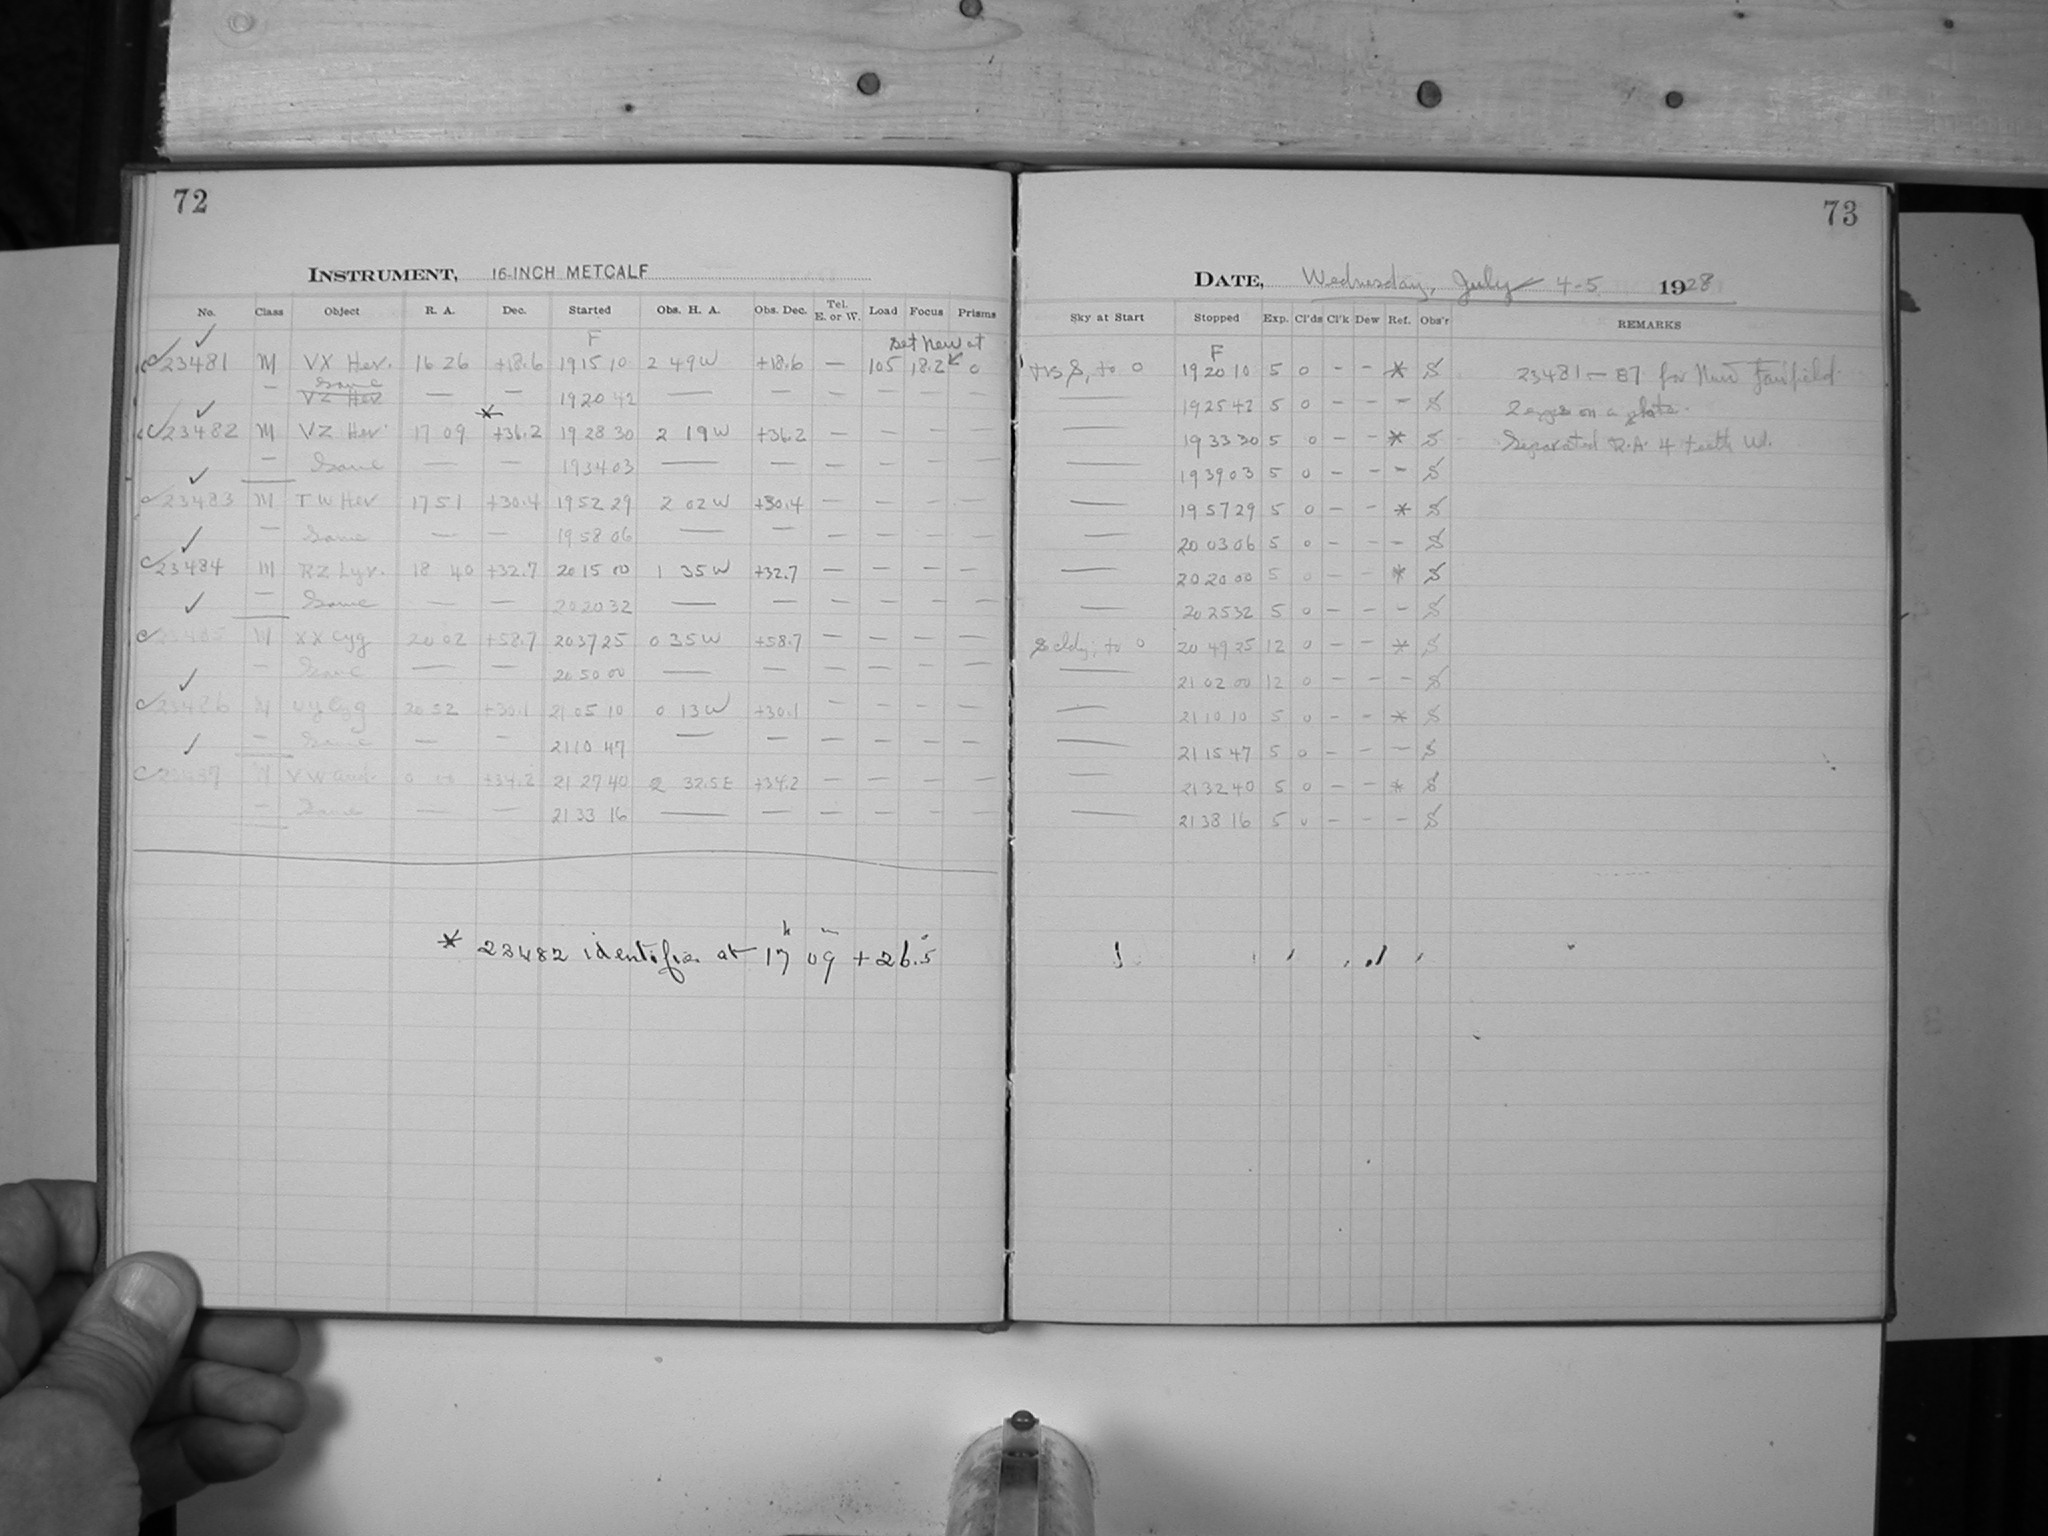 72
INSTRUMENT, 16-INCH METCALF
No. Class Object R. A. Dec. Started Obs. H. A. Obs. Dec. Tel. E. or W. Load Focus Prisms
F set New at
23481 M VX Her. 16 26 +18.6 19 15 10 2 49 W +18.6 — 105 18.2 0
— Same VZ Her — — 19 20 42 — — — — — —
*
23482 M VZ Her 17 09 +36.2 19 28 30 2 19 W +36.2 — — — —
— Same — — 19 34 03 — — — — — —
23483 M TW Her 17 51 +30.4 19 52 29 2 02 W +30.4 — — — —
— Same — — 19 58 06 — — — — — —
23484 M RZ Lyr. 18 40 +32.7 20 15 00 1 35 W +32.7 — — — —
— Same — — 20 20 32 — — — — — —
23485 M XX Cyg 20 02 +58.7 20 37 25 0 35 W +58.7 — — — —
— Same — — 20 50 00 — — — — — —
23486 M UY Cyg 20 52 +30.1 21 05 10 0 13 W +30.1 — — — —
— Same — — 21 10 47 — — — — — —
23487 M +34.2 21 27 40 2 32.5 E +34.2 — — — —
— Same — — 21 33 16 — — — — — —
* 23482 identifies at 17h 09m +26.°5
73
DATE, Wednesday, July 4-5 1928
Sky at Start Stopped Exp. Cl'ds Cl'k Dew Ref. Obs'r REMARKS
F
to 0 19 20 10 5 0 — — * S 23481 — 87 for Miss Fairfield
— 19 25 42 5 0 — — — S 2 exps on a plate.
— 19 33 30 5 0 — — * S Separated R.A. 4 teeth W.
— 19 39 03 5 0 — — — S
— 19 57 29 5 0 — — * S
— 20 03 06 5 0 — — — S
— 20 20 00 5 0 — — * S
— 20 25 32 5 0 — — — S
to 0 20 49 25 12 0 — — * S
— 21 02 00 12 0 — — — S
— 21 10 10 5 0 — — * S
— 21 15 47 5 0 — — — S
— 21 32 40 5 0 — — * S
— 21 38 16 5 0 — — — S